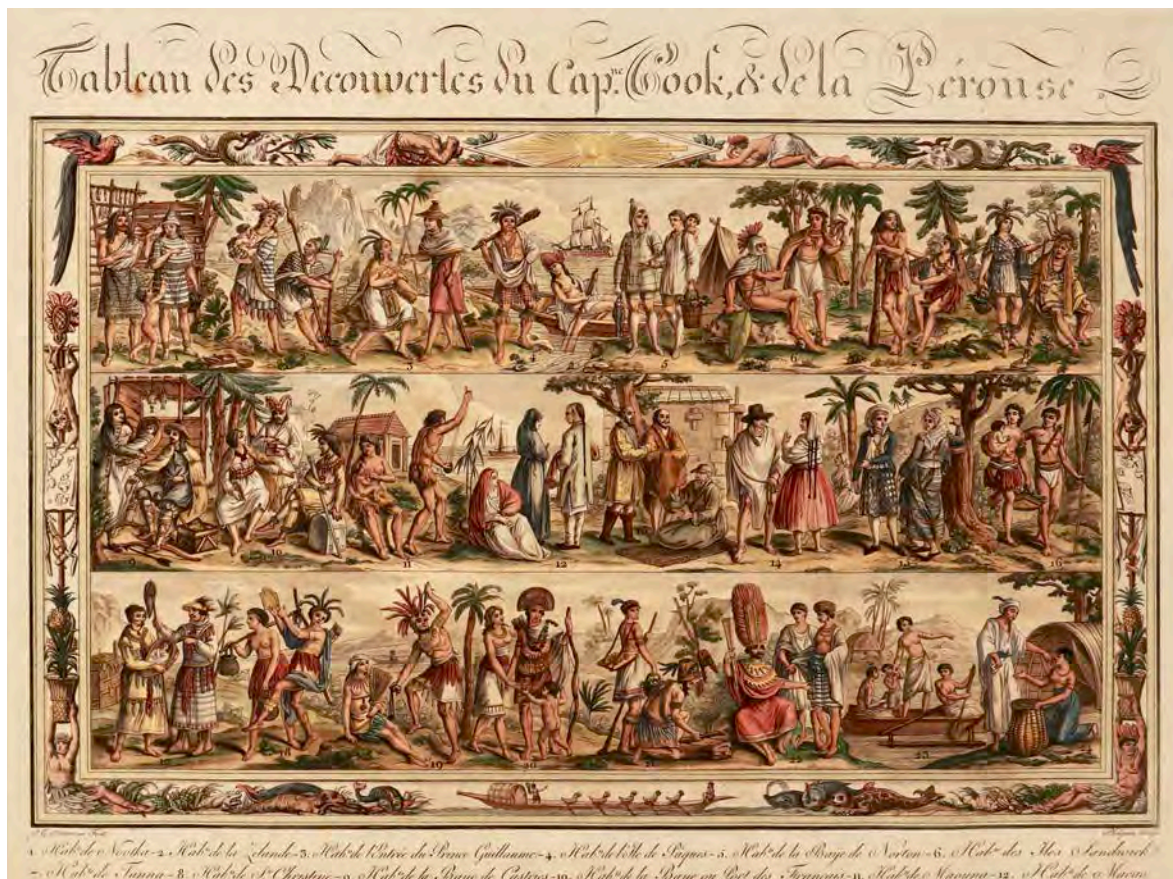 Tableau des Decouvertes du Cap.ne Cook, & de la Pérouse.
3
5
6
9
10
11
12
14
15
16
18
19
20
21
22
23
24
1. Hab.ns de Nootka-2. Hab.ns de la Zelande-3. Hab.ns de l'Entrée du Prince Guillaume-4. Hab.ns de l'Ile de Pâques-5. Hab.ns de la Baye de Norton-6. Hab.ns des Iles Sandwick
Hab.ns de Tanna-8. Hab.ns de S.te Christine-9. Hab.ns de la Baye de Castries-10. Hab.ns de la Baye ou Port des Français-11. Hab.ns de Maouna-12. Hab.ns de Macao